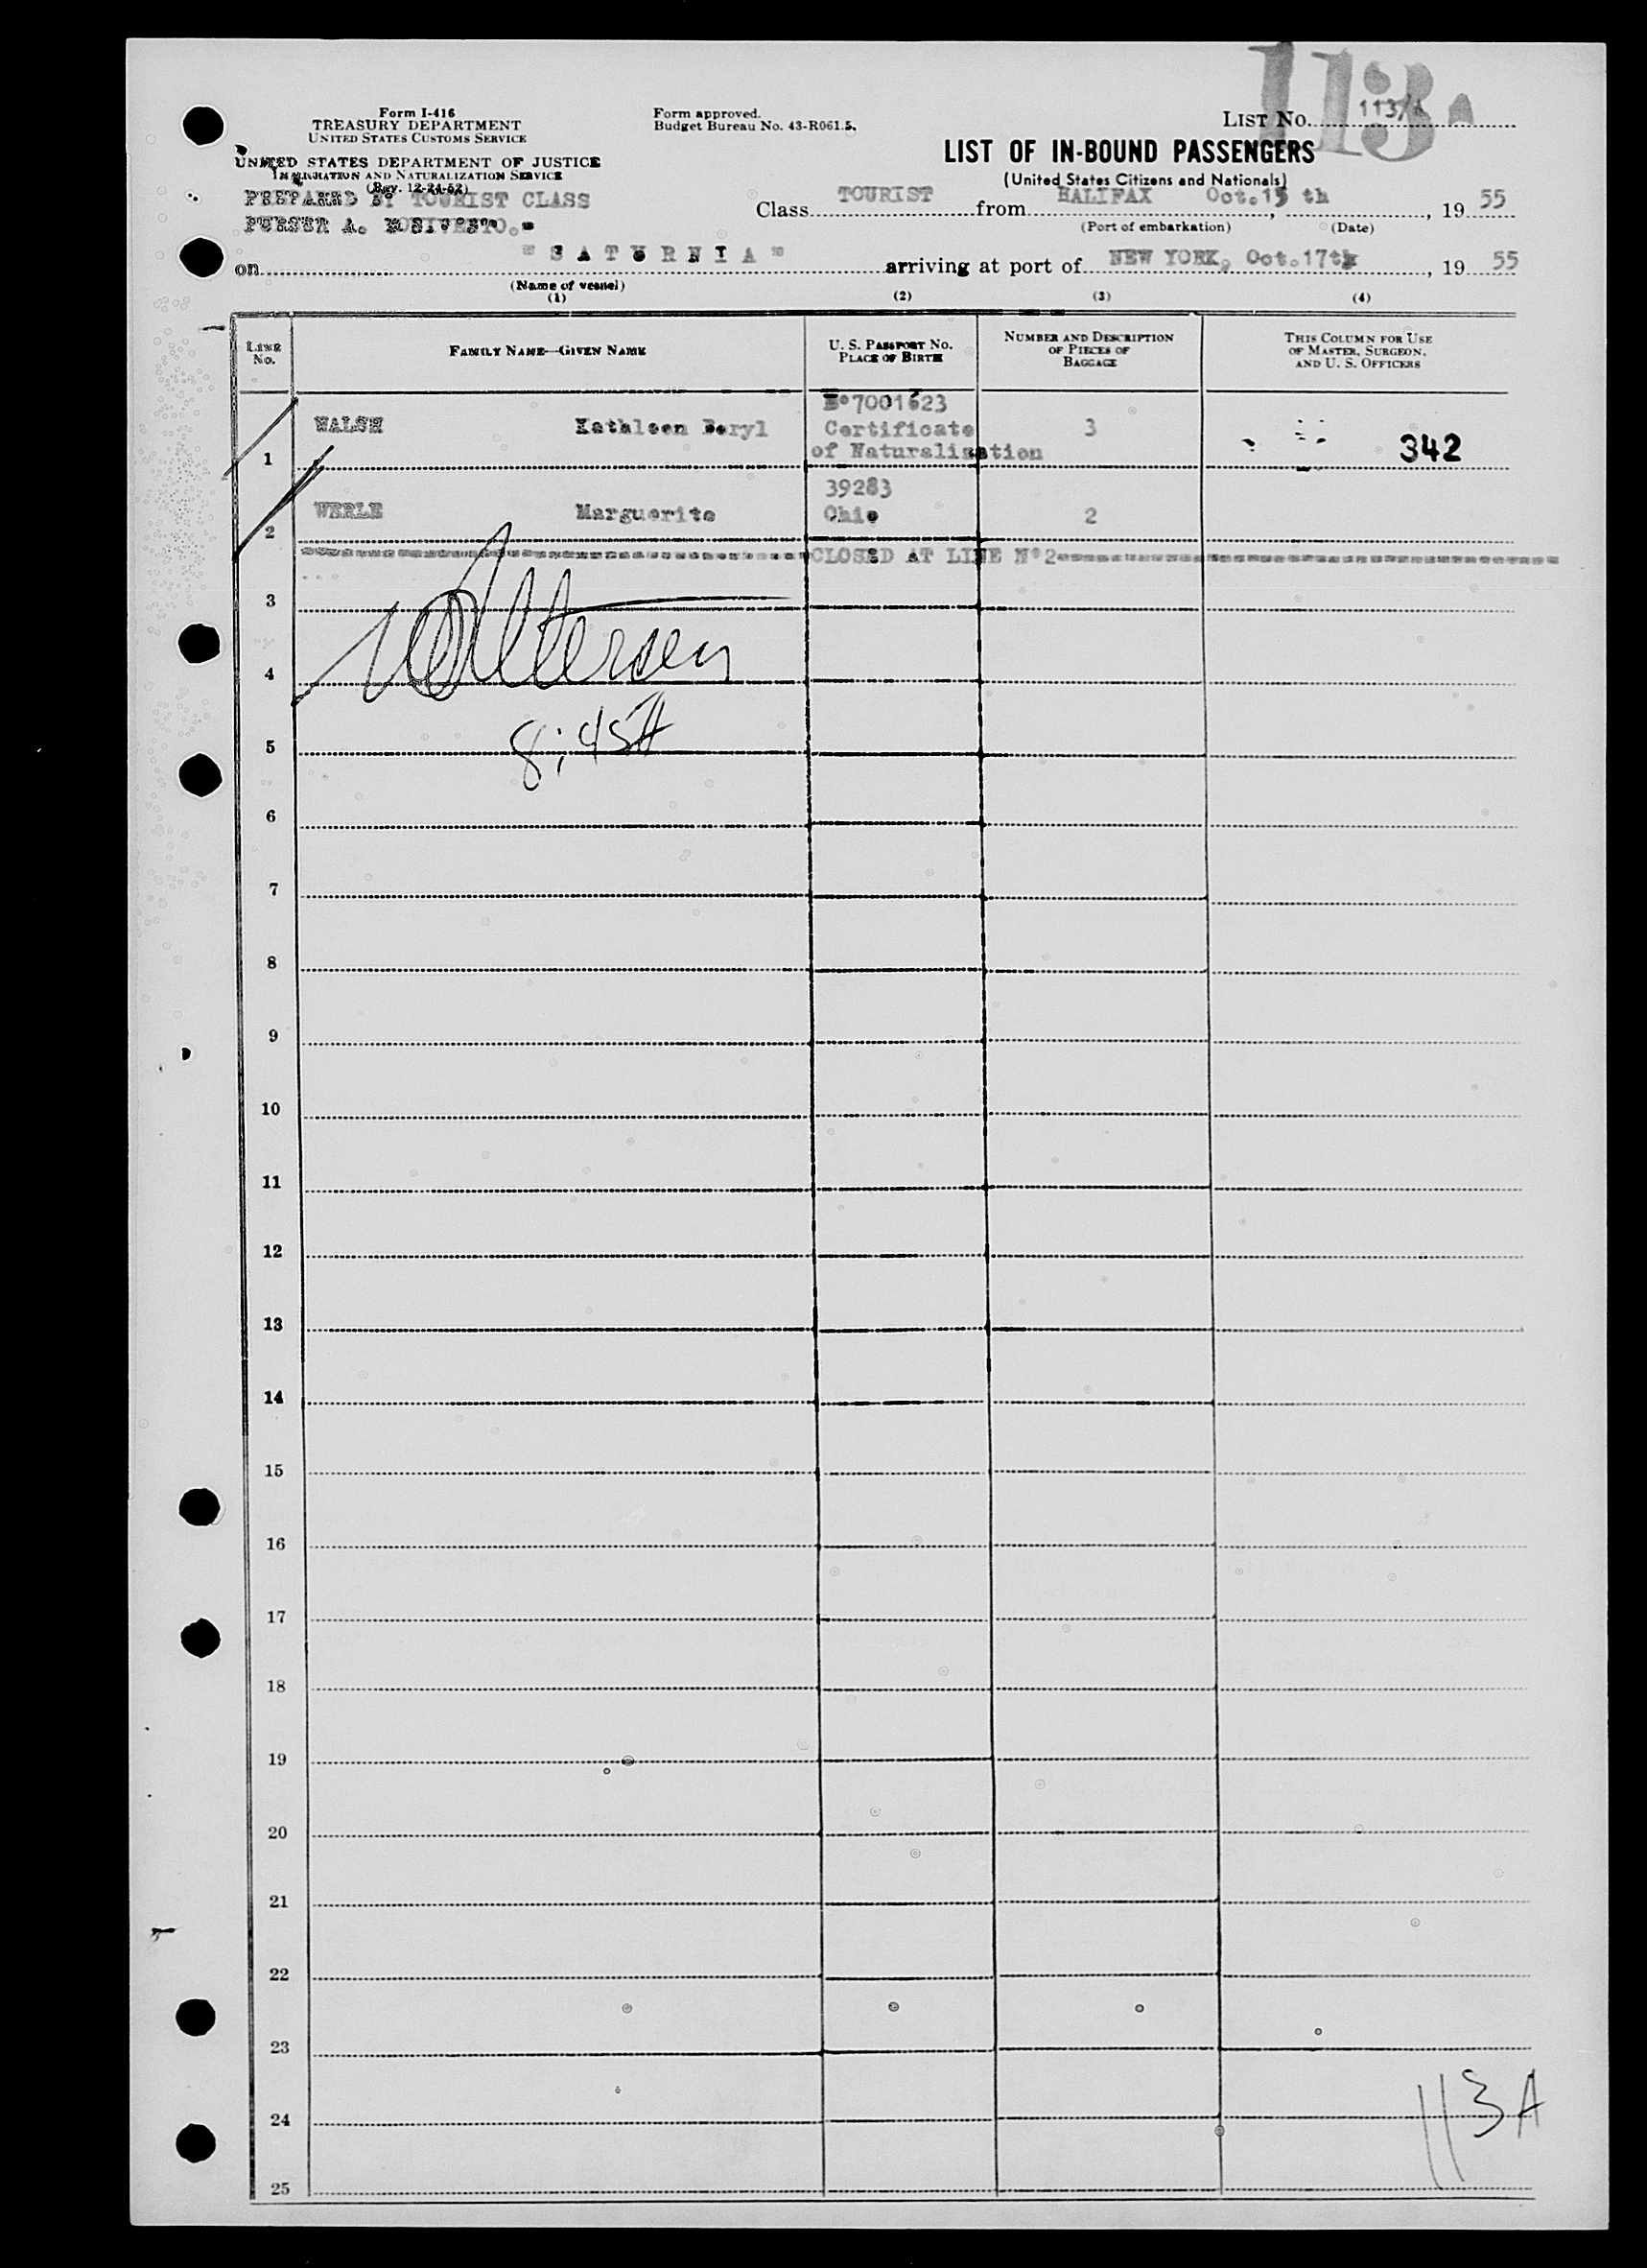 113A
Form I-416
TREASURY DEPARTMENT
UNITED STATES CUSTOMS SERVICE
UNITED STATES DEPARTMENT OF JUSTICE
IMMIGRATION AND NATURALIZATION SERVICE
(Rev. 12-24-52)
Form approved.
Budget Bureau No. 43-R061.5.
LIST No. 113/A
LIST OF IN-BOUND PASSENGERS
(United States Citizens and Nationals)
PREPARED BY TOURIST CLASS
PURSER A.
Class TOURIST from HALIFAX Oct.15 th, 1955
(Port of embarkation) (Date)
on "SATURNIA" arriving at port of NEW YORK, Oct.17th, 1955
(Name of vessel)
(1) (2) (3) (4)
LINE No. FAMILY NAME—GIVEN NAME U. S. PASSPORT No. PLACE OF BIRTH NUMBER AND DESCRIPTION OF PIECES OF BAGGAGE THIS COLUMN FOR USE OF MASTER, SURGEON, AND U. S. OFFICERS
N°7001623
WALSH Kathleen Beryl Certificate 3
1 of Naturalisation 342
39283
2 WERLE Marguerite Ohio 2
CLOSED AT LINE N°2
3
4
5 8:45A
6
7
8
9
10
11
12
13
14
15
16
17
18
19
20
21
22
23
24
113A
25